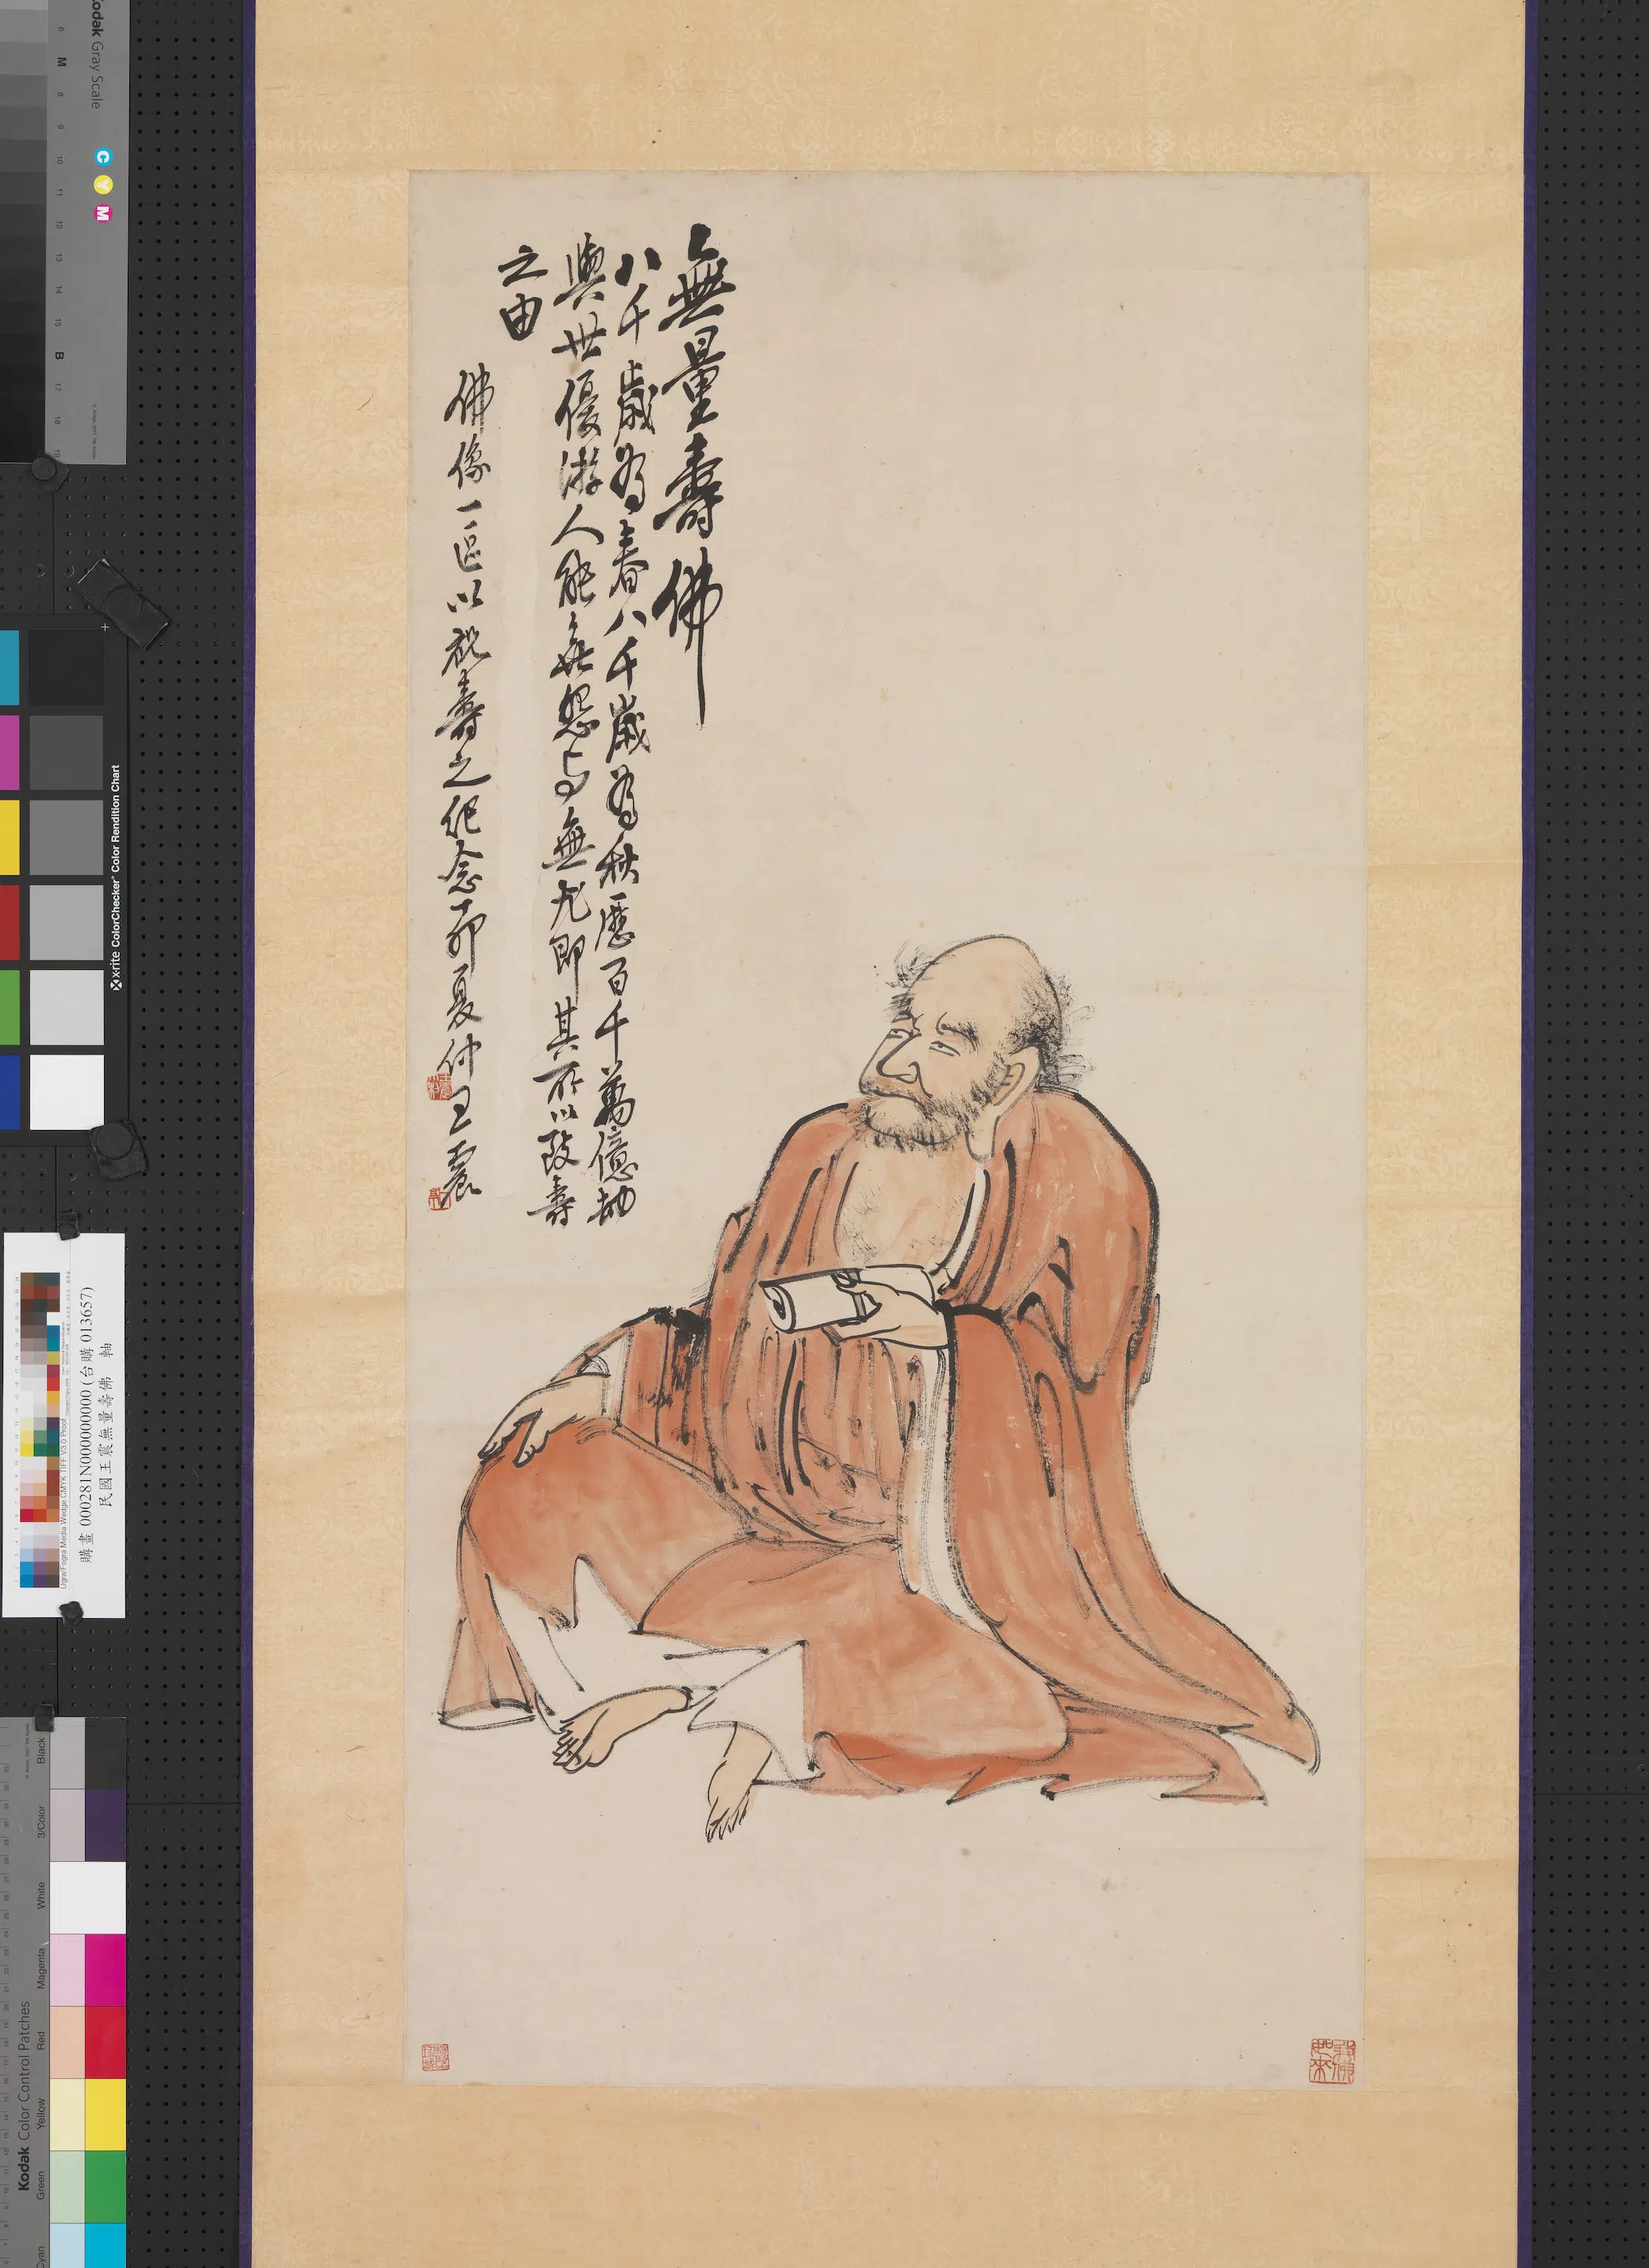 無量壽佛
八千歲為春八千歲為秋歷百千萬億劫
與世優游人能無怨与無尤即其所以致壽
之由
佛像一區以祝壽之紀念丁卯夏仲王震
我佛
如來
Kodak Gray Scale
C Y M
M 8 9 10 11 12 13 14 15 B 17 18 19
x-rite ColorChecker Color Rendition Chart
購畫 000281N000000000 (台購 013657)
民國王震無量壽佛 軸
Ugra/Fogra Media Wedge CMYK TIFF V3.0 Proof
Kodak Color Control Patches
Black
3/Color
White
Magenta
Red
Yellow
Green
Cyan